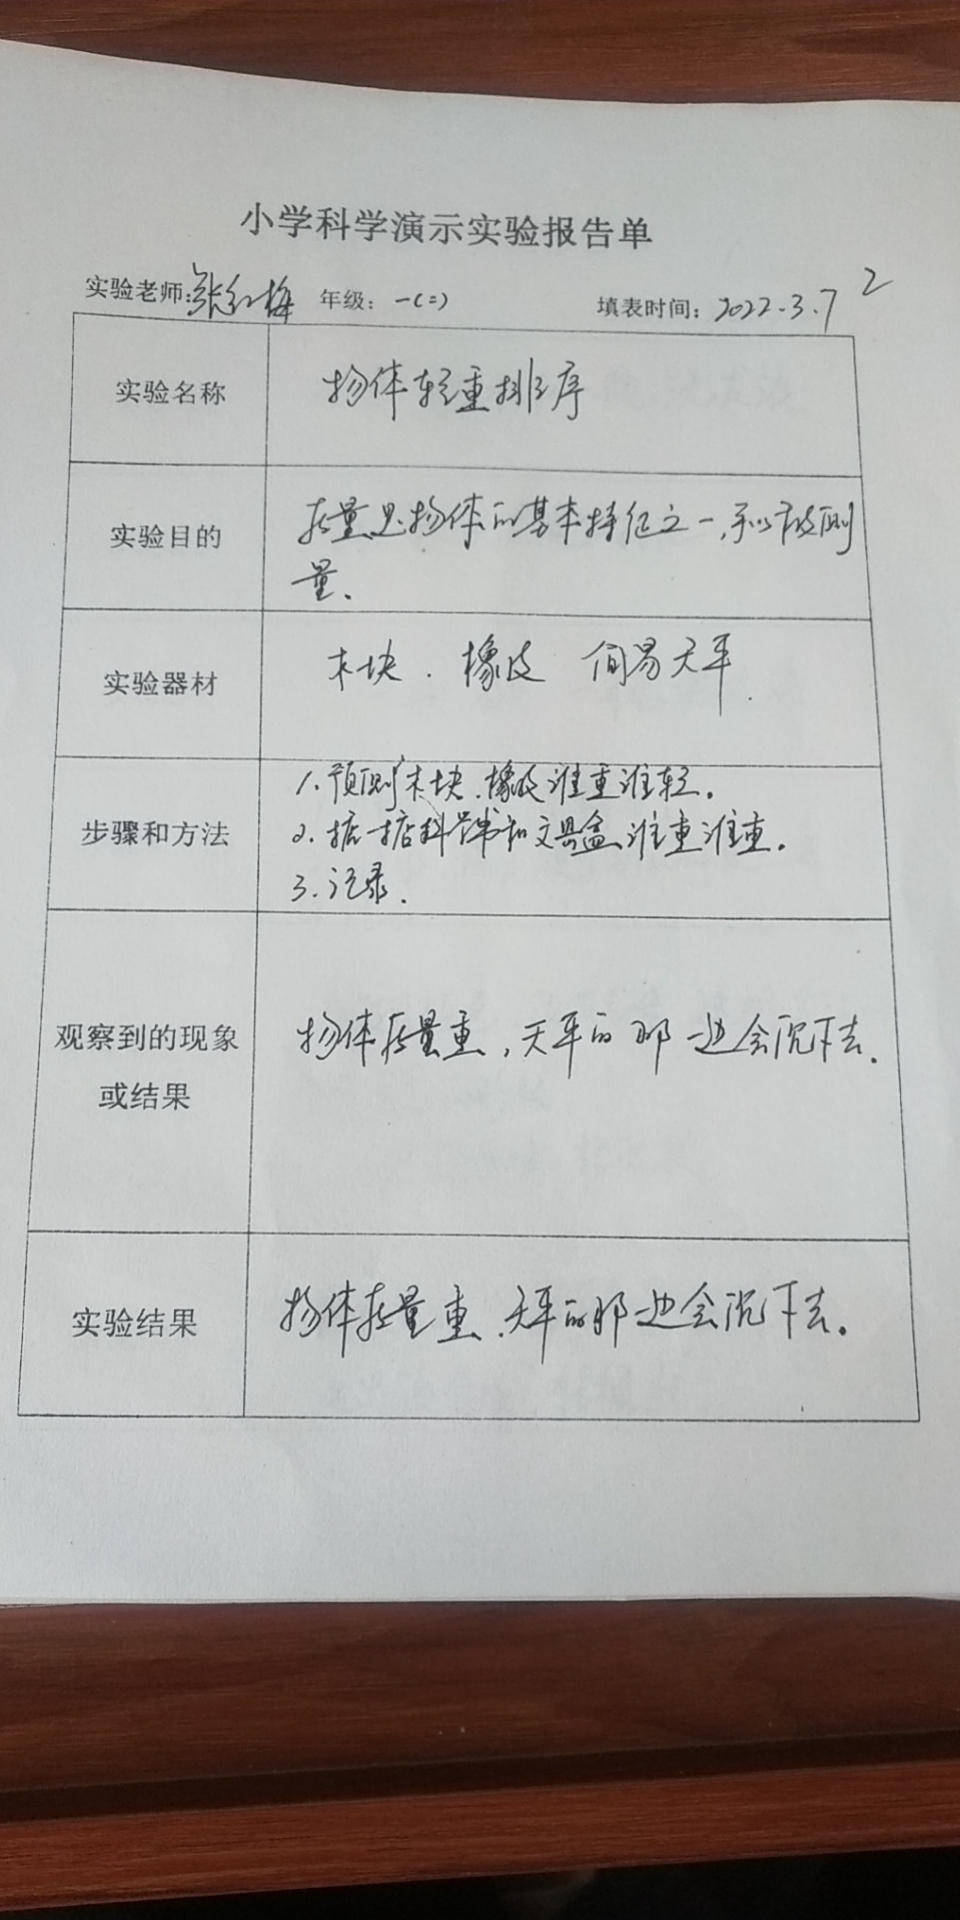 小学科学演示实验报告单
2
实验老师:张红梅 年级：一(二) 填表时间：2022.3.7
实验名称 物体轻重排序
实验目的 质量是物体的基本特征之一,可以被测
量.
实验器材 木块. 橡皮 简易天平.
步骤和方法
1.预测木块、橡皮谁重谁轻.
2.掂一掂科学书和文具盒谁重谁重.
3.记录.
观察到的现象
或结果
物体质量重,天平的那一边会沉下去.
实验结果 物体质量重、天平的那一边会沉下去.